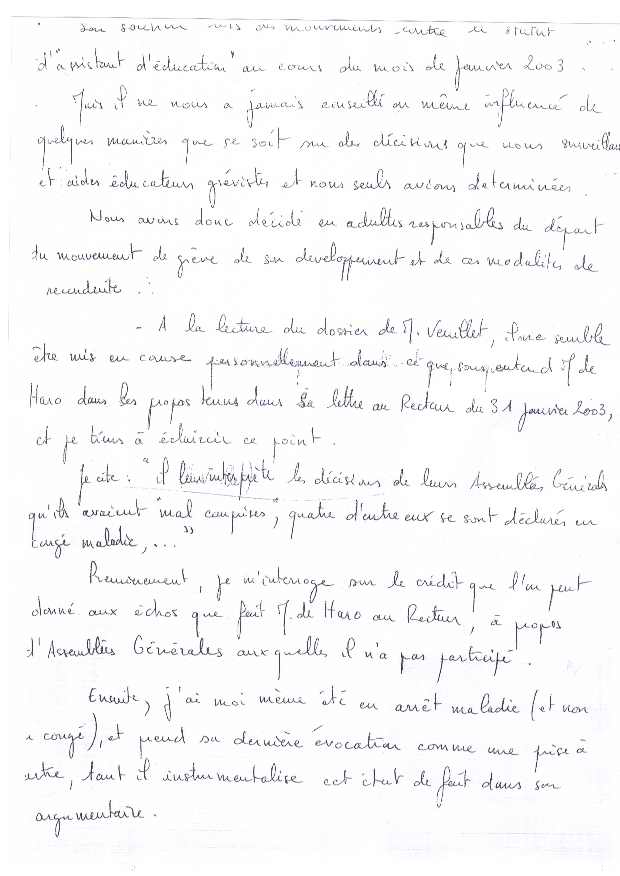 son soutien mis aux mouvements contre le statut
d'"assistant d'éducation" au cours du mois de janvier 2003.
Mais il ne nous a jamais conseillé ou même influencé de
quelques manières que se soit sur des décisions que nous surveillan
et aides éducateurs grévistes et nous seuls avions determinées.
Nous avons donc décidé en adultes responsables du départ
du mouvement de grève de son developpement et de ces modalités de
reconduite.
- A la lecture du dossier de M. Veuillet, il me semble
être mis en cause personnellement dans ce que sous entend M de
Haro dans les propos tenus dans sa lettre au Recteur du 31 janvier 2003,
et je tiens à éclaircir ce point.
Je cite : "il leur interprète les décisions de leurs Assemblées Générales
qu'ils avaient "mal comprises", quatre d'entre eux se sont déclarés en
congé maladie, ..."
Premièrement, je m'interroge sur le crédit que l'on peut
donné aux échos que fait M. de Haro au Recteur, à propos
d'Assemblées Générales auxquelles il n'a pas participé.
Ensuite, j'ai moi même été en arrêt maladie (et non
congé), et prend sa dernière évocation comme une prise à
, tant il instrumentalise cet état de fait dans son
argumentaire.